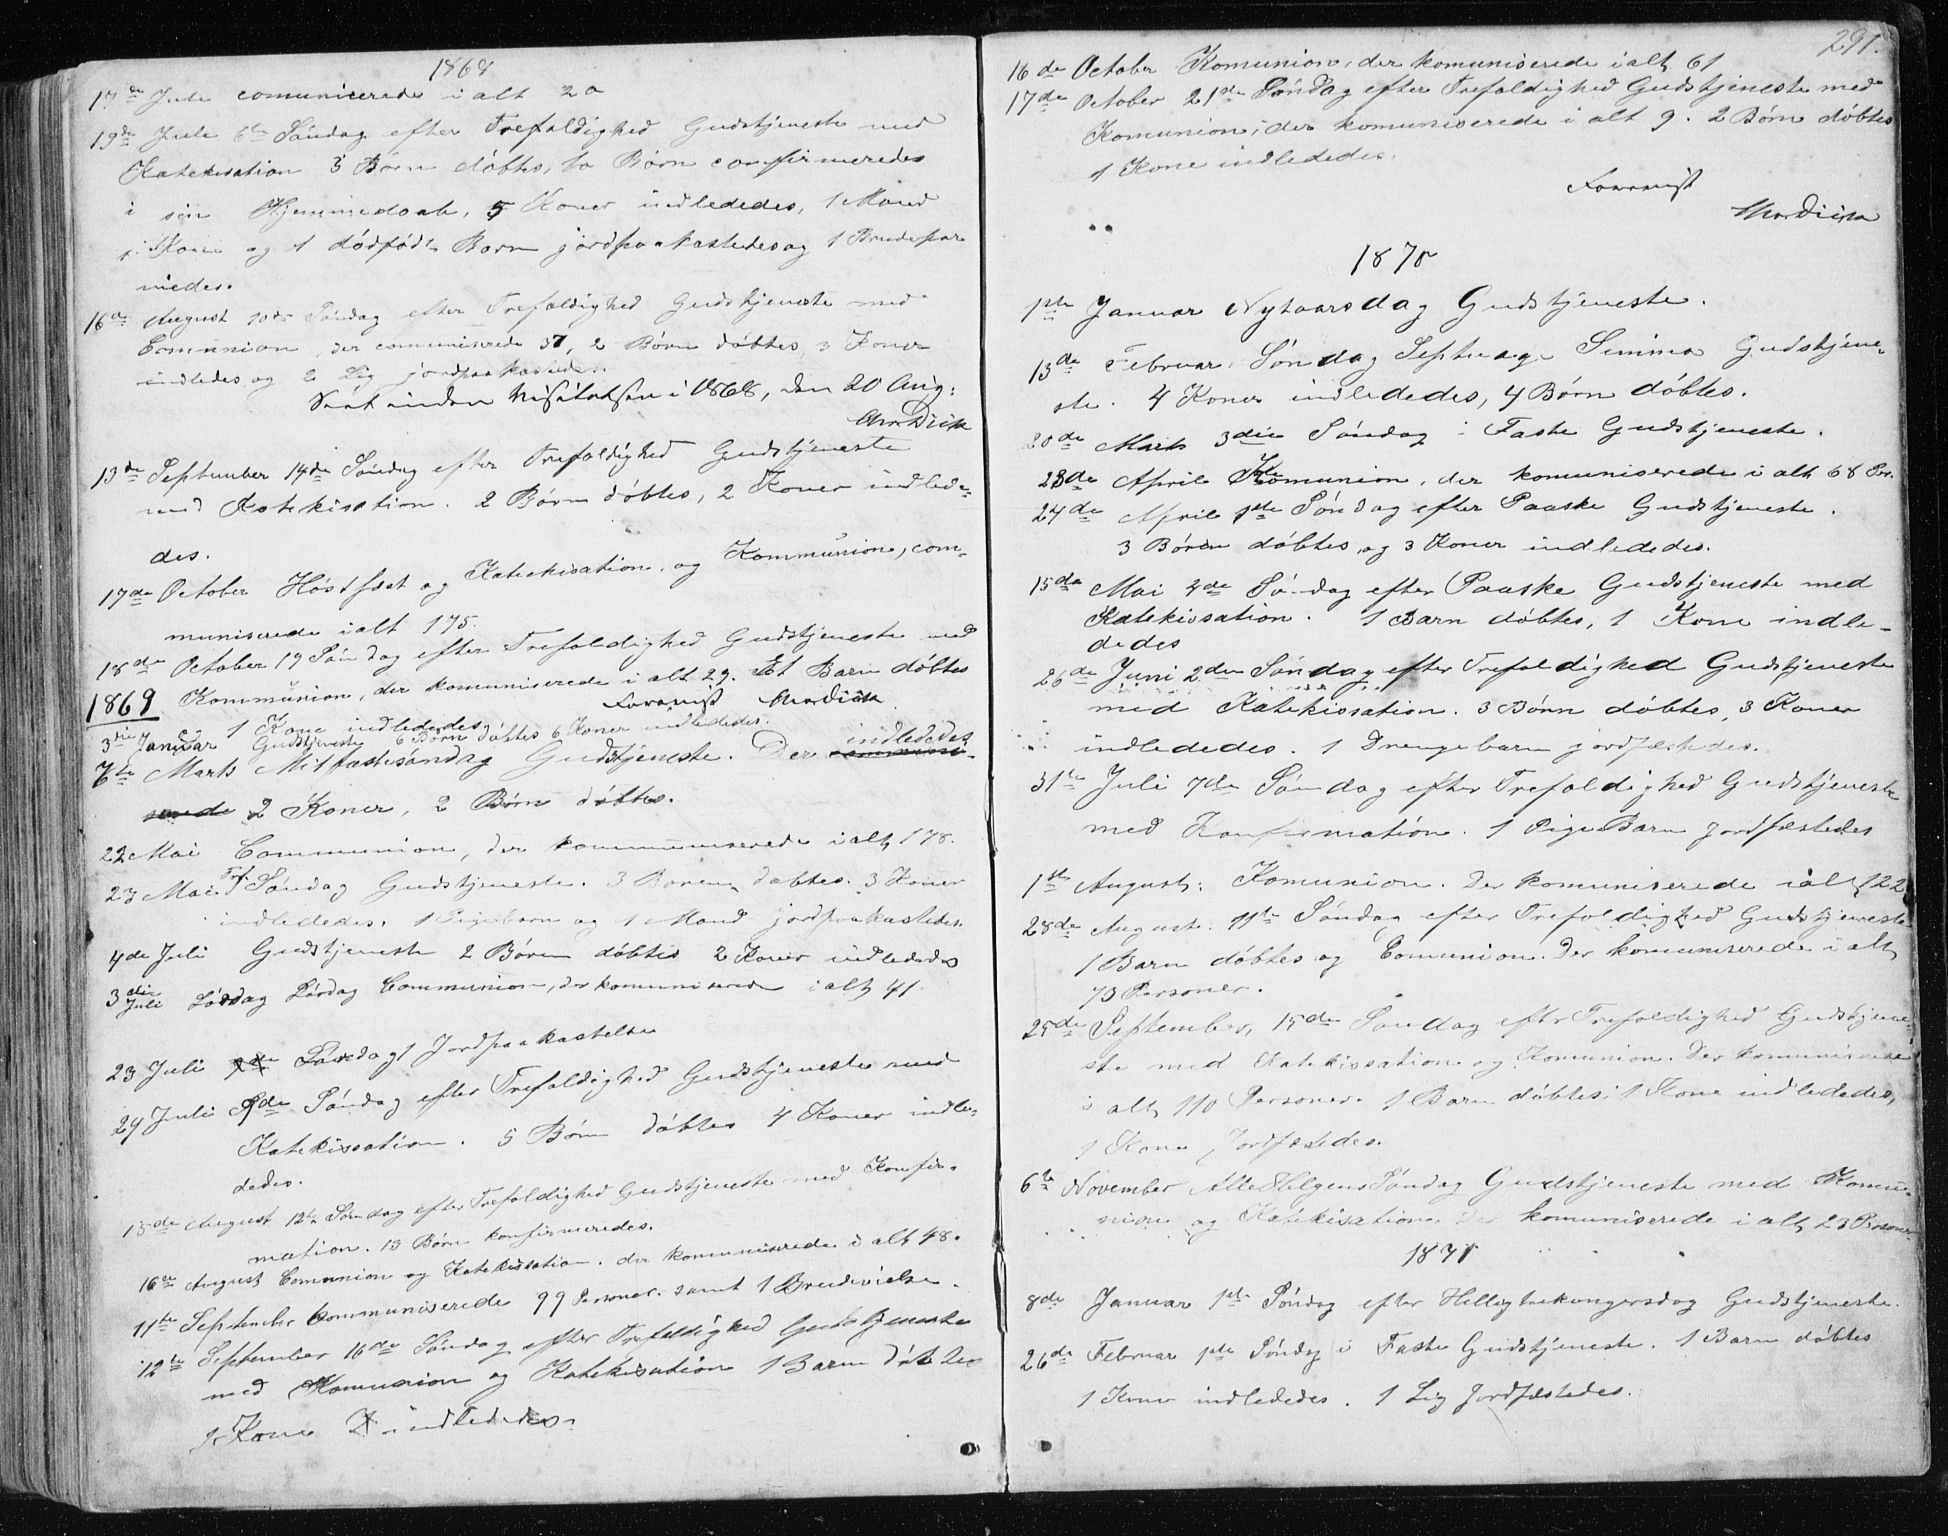 1868
17de Juli comunicerede i alt 20
19de Juli 6te Søndag efter Trefoldighed Gudstjeneste med
Katekisation 3 Børn døbtes, to Børn confirmeredes
i sin Hjemmedaab, 5 Koner indlededes, 1 Mand
1 Kone og 1 dødfødt Barn jordpaakastedes og 1 Brudepar
viedes.
16de August 10de Søndag efter Trefoldighed Gudstjeneste med
Comunion, der comuniserede 37, 2 Børn døbtes, 3 Koner
indledes og 2 Lig jordpaakastedes.
Seet under Visitatsen i 1868, den 20 Aug:
13de September 14de Søndag efter Trefoldighed Gudstjeneste
med Katekisation. 2 Børn døbtes, 2 Koner indlede-
des.
17de October Høstfest og Katekisation og Kommunion, com-
muniserede i alt 175.
18de October 19 Søndag efter Trefoldighed Gudstjeneste med
Kommunion, der komuniserede i alt 29. Et Barn døbtes
1 Kone indlededes,
1869
3die Januar Gudstjeneste 6 Børn døbtes 6 Koner indlededes.
7de Marts Midfastesøndag Gudstjeneste. Der communi- indledede
serede 2 Koner, 2 Børn døbtes.
22 Mai Communion, der kommuniserede i alt 178.
23 Mai Tref. Søndag Gudstjeneste. 3 Børen døbtes. 3 Koner
indlededes. 1 Pigebarn og 1 Mand jordpaakastedes.
4de Juli Gudstjeneste 2 Børn døbtes 2 Koner indlededes
3die Juli Lørdag Communion, der komuniserede i alt 41
23 Juli Jordpaakastelse
29 Juli 9de Søndag efter Trefoldighed Gudstjeneste med
Katekisation. 5 Børn døbtes 4 Koner indle-
dedes.
15de August 12te Søndag efter Trefoldighed Gudstjeneste med Konfir-
mation. 13 Børn konfirmeredes.
16de August Comunion og Katekisation. der komuniserede i alt 48.
11te September kommuniserede 99 Personer. samt 1 Brudevielse.
12te September 16de Søndag efter Trefoldighed Gudstjeneste
med Komunion og Katekisation 1 Barn døbtes
1 Kone indlededes.
291.
16de October Komunion, der komuniserede i alt 61
17de October 21de Søndag efter Trefoldighed Gudstjeneste med
Komunion, der komuniserede i alt 9. 2 Børn døbtes
1 Kone indlededes.
Forevist
1870
1ste Januar Nytaarsdag Gudstjeneste.
13de Februar Søndag Septuag. Simma Gudstjene-
ste. 4 Koner indlededes, 4 Børn døbtes.
20de Marts 3die Søndag i Faste Gudstjeneste.
23de April Komunion, der komuniserede i alt 68 Per.
24de April 1ste Søndag efter Paaske Gudstjeneste.
3 Børen døbtes og 3 Koner indlededes.
15de Mai 4de Søndag efter Paaske Gudstjeneste med
Katekisation. 1 Barn døbtes, 1 Kone indle-
dedes
26de Juni 2den Søndag efter Trefoldighed Gudstjeneste
med Katekisation. 3 Børn døbtes, 3 Koner
indlededes. 1 Drengebarn jordfæstedes.
31te Juli 7de Søndag efter Trefoldighed Gudstjeneste
med Konfirmation. 1 Pige Barn Jordfæstedes
1ste August: Komunion. Der komuniserede i alt 122
28de August: 11te Søndag efter Trefoldighed Gudstjeneste
1 Barn døbtes og Comunion. Der komuniserede i alt
73 Personer.
25de September, 15de Søndag efter Trefoldighed Gudstjene-
ste med Katekisation og Komunion. Der komuniserede
i alt 110 Personer. 1 Barn døbtes, 1 Kone indlededes,
1 Kone Jordfæstedes.
6te November Alle Helgens Søndag Gudstjeneste med Komu-
nion og Katekisation. Der komuniserede i alt 23 Personer
1871
8de Januar 1ste Søndag efter Helligtrekongersdag Gudstjeneste.
26de Februar 1ste Søndag i Faste Gudstjeneste. 1 Barn døbtes
1 Kone indlededes. 1 Lig Jordfæstedes.